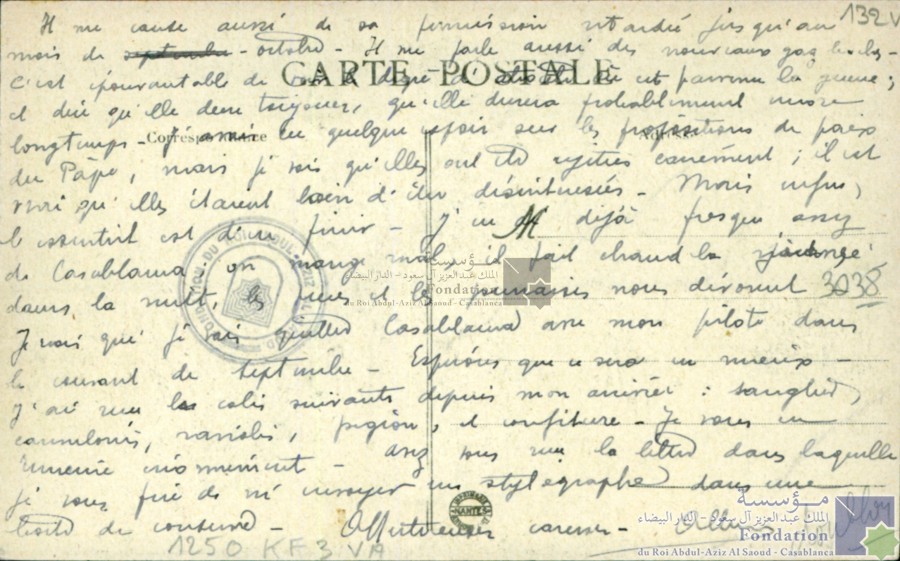 132 V
Il me cause aussi de sa permission retardée jusqu'au
mois de septembre - octobre - Il me parle aussi des nouveaux gaz
CARTE POSTALE
C'est épouvantable de est parvenu la guerre ;
et dire qu'elle dure toujours, qu'elle durera probablement encore
Correspondance
Adresse
longtemps - J'avais eu quelque espoir sur les propositions de paix
du Pape, mais je vois qu'elles ont été rejetées carrément ; il est
vrai qu'elles étaient loin d'être désintéressées - Mais enfin,
le essentiel est d'en finir - J'en ai déjà presque assez
de Casablanca on mange mal, il fait chaud la journée
dans la nuit, les et les punaises nous dévorent
3038
Je crois que je vais quitter Casablanca avec mon pilote dans
le courant de septembre - Espérons que ce sera un mieux -
J'ai reçu les colis suivants depuis mon arrivée : sanglier,
cannelonis, raviolis, pigeon, et confiture - Je vous en
remercie énormément - avez vous reçu la lettre dans laquelle
je vous prie de m'envoyer un stylographe dans une
boîte de conserve - Affectueuses caresses -
NANTES
1250 KF 3 VA
الملك عبد العزيز آل سعود - الدار البيضاء
Fondation
du Roi Abdul-Aziz Al Saoud - Casablanca
مؤسسة
الملك عبد العزيز آل سعود - الدار البيضاء
Fondation
du Roi Abdul-Aziz Al Saoud - Casablanca